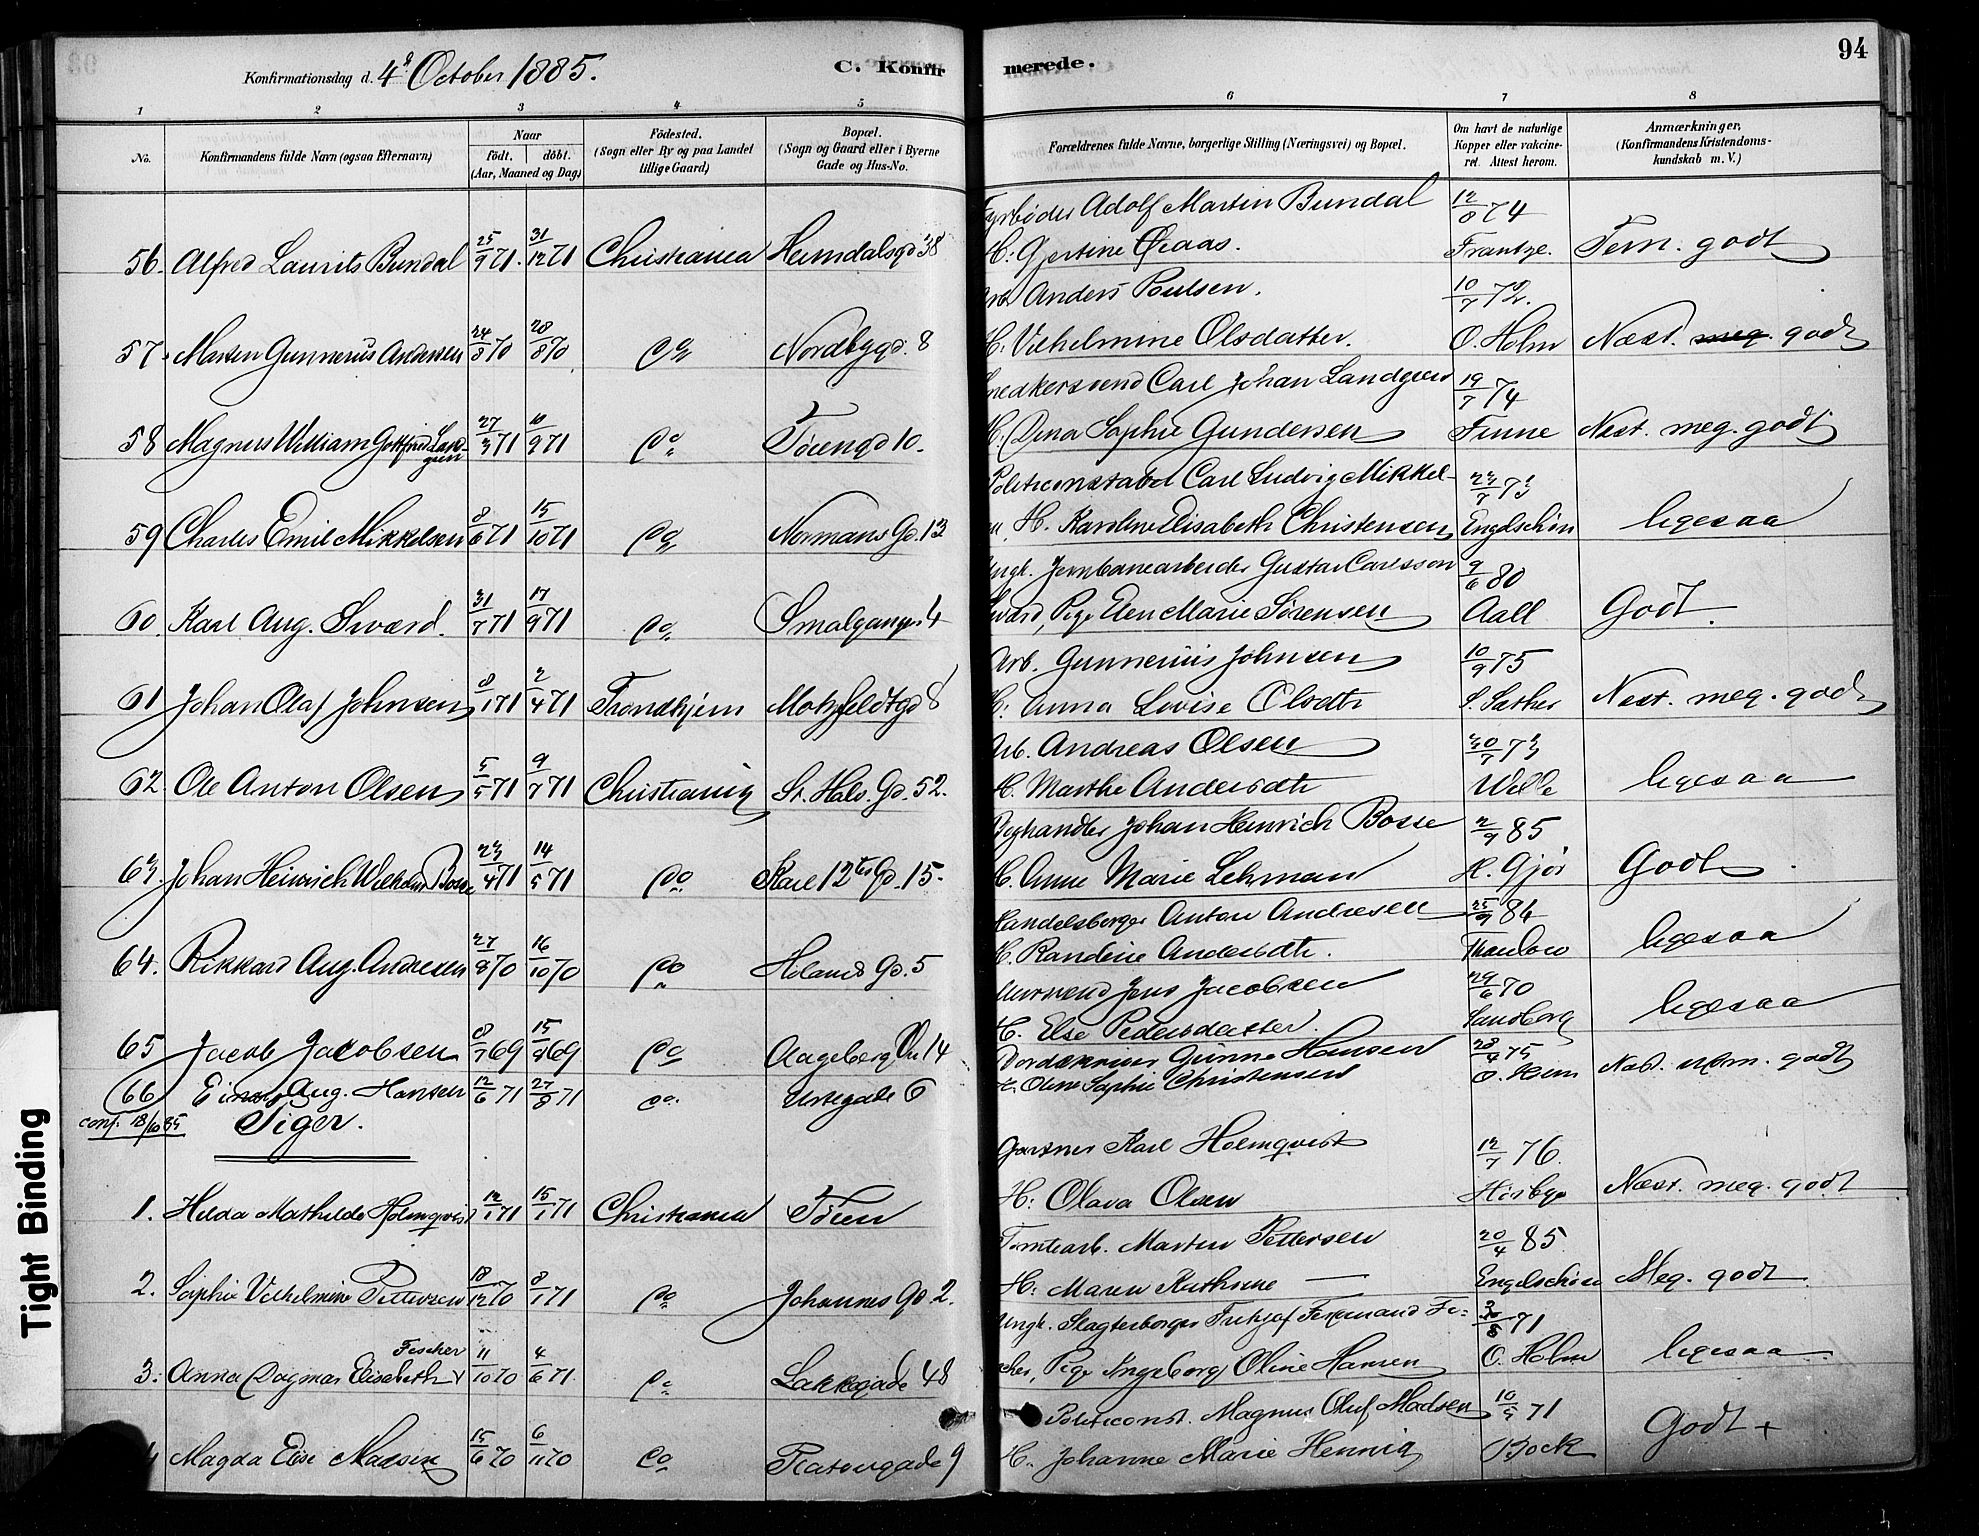 94
Konfirmationsdag d. 4d October 1885. C. Konfirmerede.
1 2 3 4 5 6 7 8
No. Konfirmandens fulde Navn (ogsaa Efternavn) Naar født. døbt. (Aar, Maaned og Dag) Fødested. (Sogn eller By og paa Landet tillige Gaard) Bopæl. (Sogn og Gaard eller i Byerne Gade og Hus-No. Forældrenes fulde Navne, borgerlige Stilling (Næringsvei) og Bopæl. Om havt de naturlige Kopper eller vakcineret. Attest herom. Anmærkninger, (Konfirmandens Kristendomskundskab m. V.)
Fyrbøder Adolf Martin Bundal 12/8 74
56. Alfred Laurits Bundal 25/9 71. 31/12 71 Christiania Heimdalsgd 38 H: Gjertine Frantze. Tem. godt
Arb. Anders Poulsen. 10/7 72.
57. Morten Gunnerius Andersen 24/3 70 28/8 70 do Nordbygd. 8 H: Vilhelmine Olsdatter. O. Holm Næst. meg. godt
Snedkersvend Carl Johan Landgren 19/7 74
58 Magnus William Gottfried Landgren 27/3 71 10/9 71 do Tøiengd 10. H. Dina Sophie Gundersen Finne Næst. meg. godt
Politiconstabel Carl Ludvig Mikkel- 23/7 73
59 Charles Emil Mikkelsen 8/6 71 15/10 71 do Normans Gd. 13 H. Karoline Elisabeth Christensen Engelschøn ligesaa
Ungk. Jernbanearbeider Gustav Carlsson 9/6 80
60. Karl Aug. Sværd. 31/7 71 17/9 71 do Smalgangen 4 Sværd, Pige Elen Marie Sørensen Aall Godt.
Arb. Gunnerius Johnsen 10/9 75
61 Johan Olaf Johnsen 8/1 71 2/4 71 Trondhjem Motzfeldtgd 8 H: Anna Lovise Olsdtr S. Sæther Næst. meg. godt
Arb. Andreas Olsen 30/7 73
62 Ole Anton Olsen 5/5 71 9/7 71 Christiania St. Halv. Gd. 52. H. Marthe Andersdtr Wille ligesaa
Johan Heinrich Bosse 2/9 85
63. Johan Heinrich Wilhelm Bosse 23/4 71 14/5 71 do Karl 12tes Gd. 15. H. Anne Marie Lehman H. Gjør Godt
Handelsborger Anton Andresen 25/9 84
64. Rikkard Aug. Andresen 27/8 70 16/10 70 do Holands Gd. 5 H. Randine Andersdtr. Thaulow ligesaa
Murersvend Jens Jacobsen 29/6 70
65 Jacob Jacobsen 8/7 69 15/8 69 do Aageberg Vn 14 H. Else Pedersdatter. Sandberg ligesaa
Gunne Hansen 28/4 75
66 Einar Aug. Hansen 12/6 71 27/8 71 do Urtegade 6 H. Oline Sophie Christensen O. Næst. godt
conf. 18/10 85 Piger.
Gartner Karl Holmqvist 12/7 76.
1. Hilda Mathilde Holmqvist 12/1 71 15/1 71 Christiania Tøien H: Olava Olsen Hørbye Næst. meg. godt
Tomtearb. Martin Pettersen 20/4 85.
2. Sophie Vilhelmine Pettersen 18/12 70 8/1 71 do Johannes Gd 2. H: Maren Kathrine — Engelschøn Meg. godt
Ungk. Slagterborger Fritjof Ferdinand Fi- 71
3. Anna Dagmar Elisabeth Fischer 11/10 70 4/6 71. do Lakkegade 48 cher, Pige Ingeborg Oline Hansen O. Holm ligesaa
Politiconst. Magnus Oluf Madsen 10/5 71
Magda Elise Madsen 15/6 70 6/11 70 do Platousgade 9 H. Johanne Marie Hennig Bock Godt +
Tight Binding